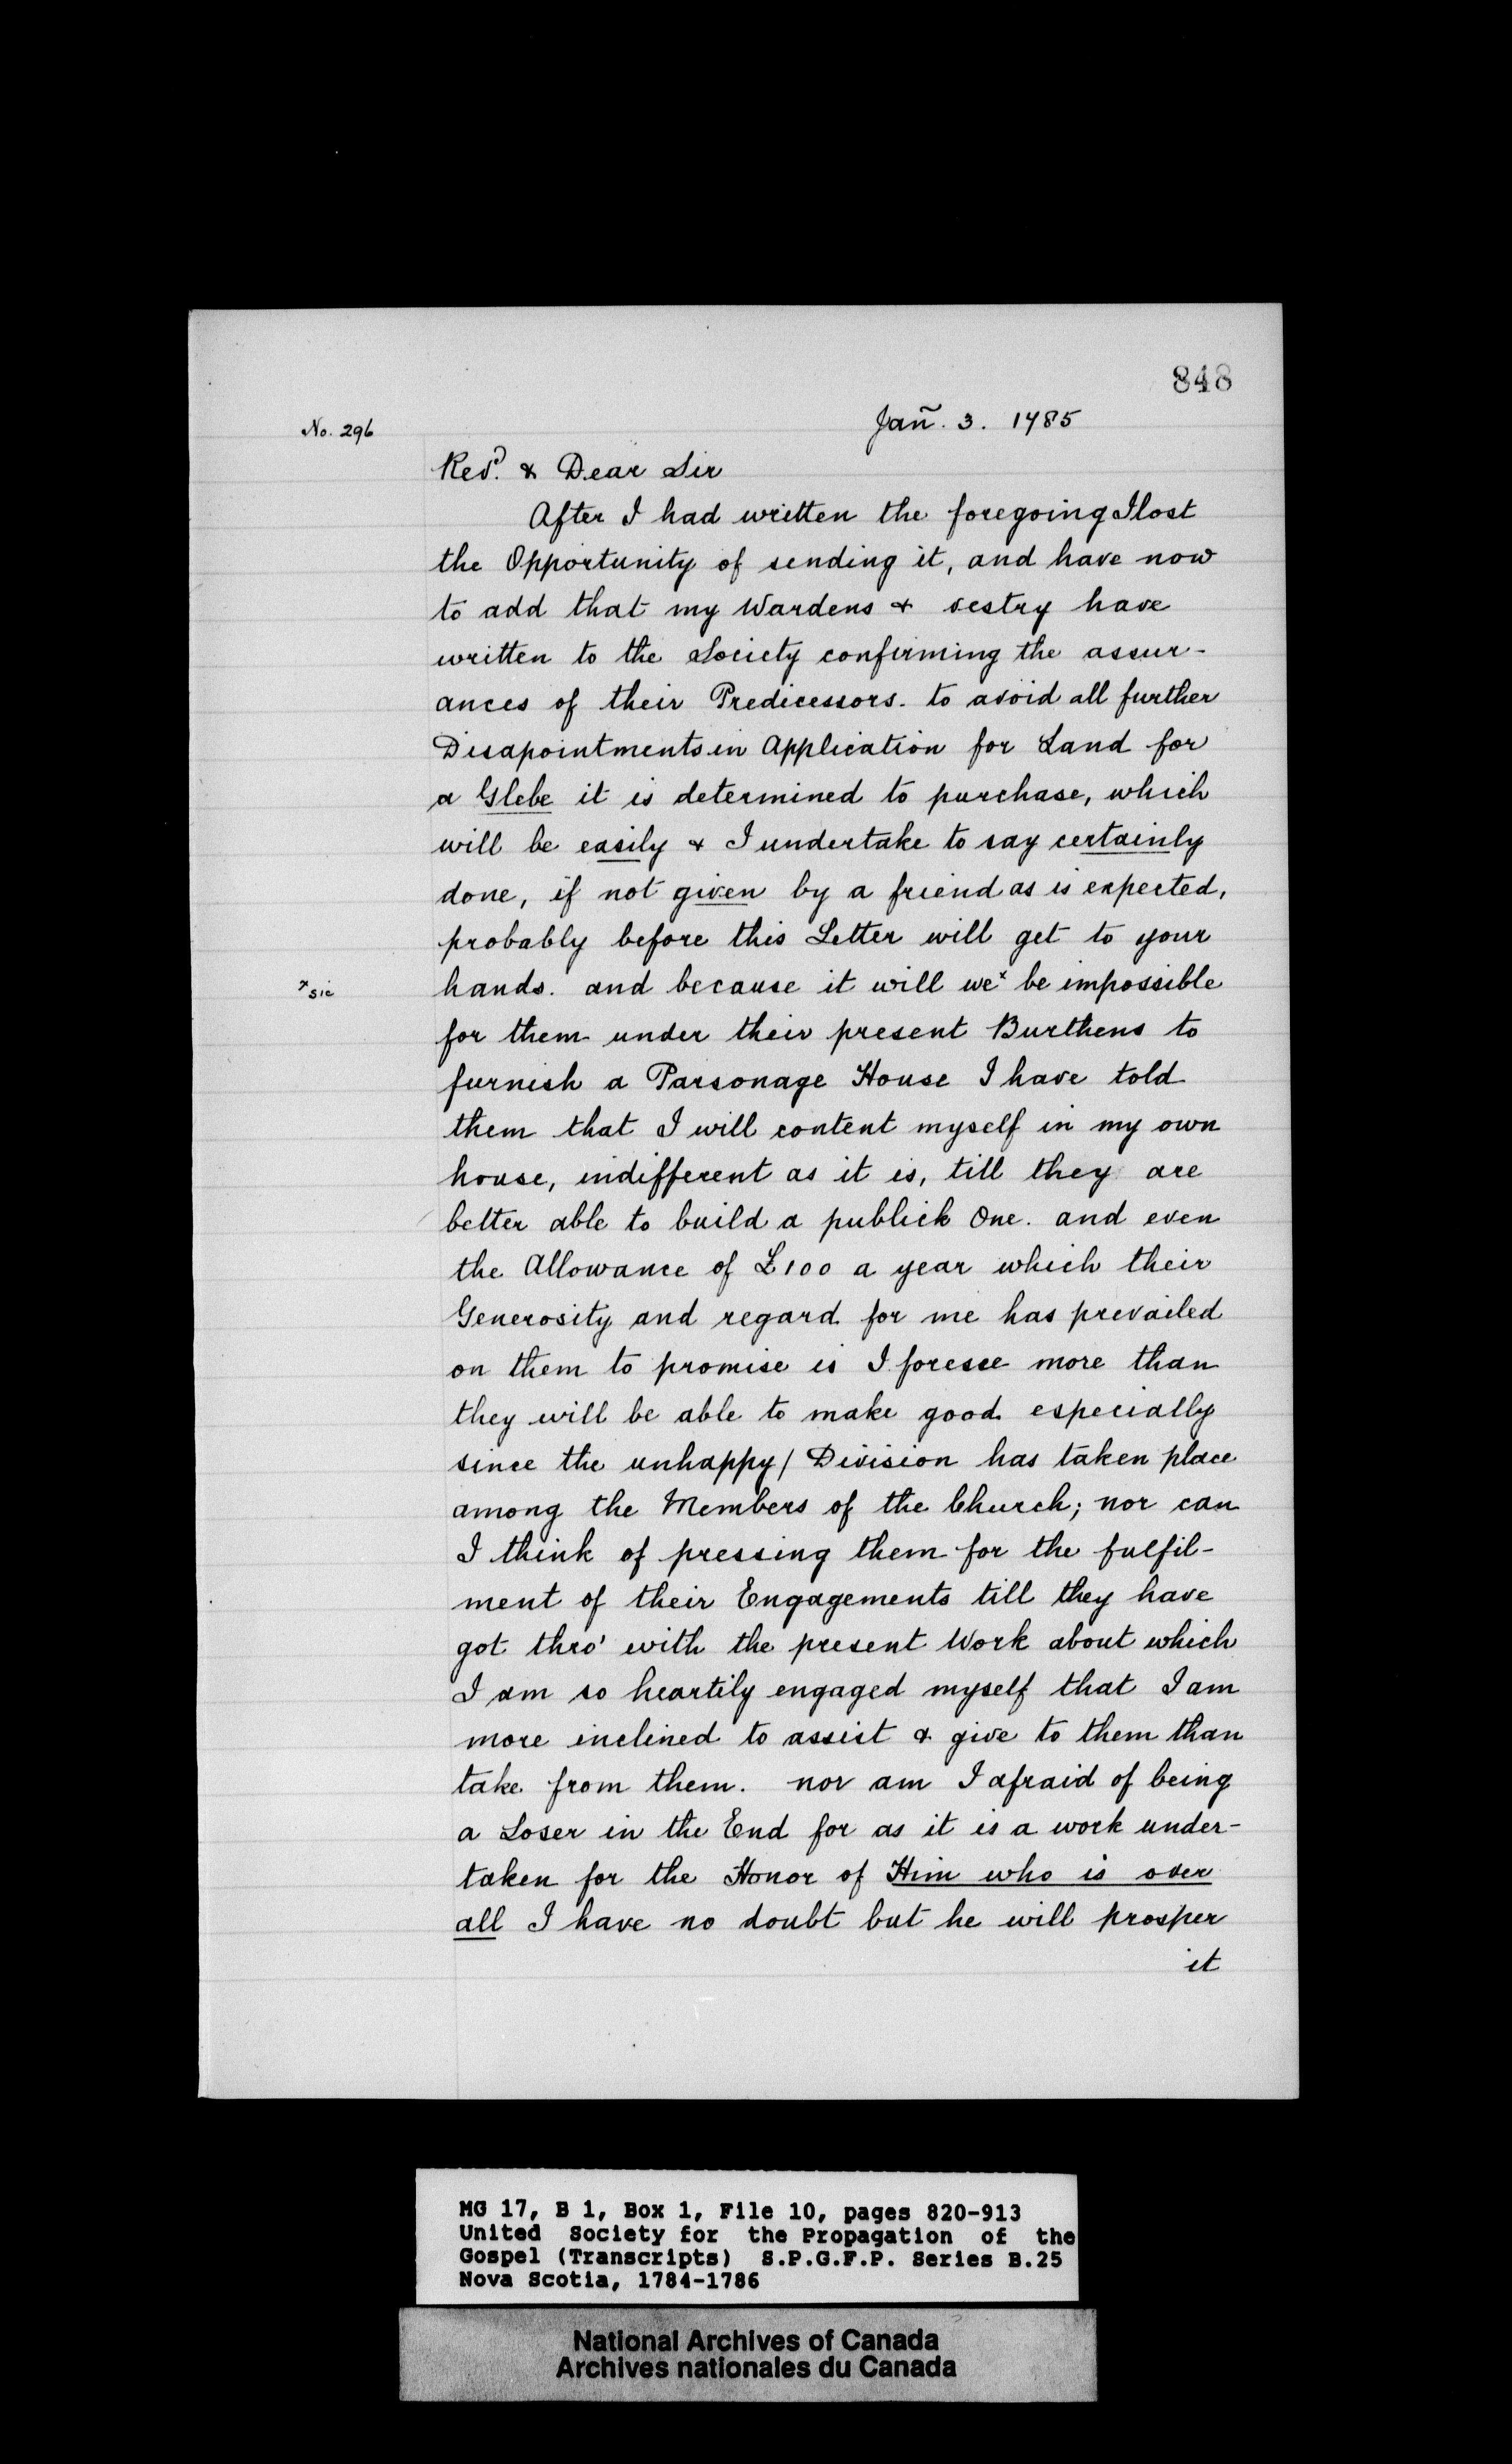 848
No. 296
Jañ. 3. 1785
Revd. & Dear Sir
After I had written the foregoing I lost
the Opportunity of sending it, and have now
to add that my Wardens & vestry have
written to the Society confirming the assur-
ances of their Predicessors. to avoid all further
Disapointments in Application for Land for
a Glebe it is determined to purchase, which
will be easily & I undertake to say certainly
done, if not given by a friend as is expected,
probably before this Letter will get to your
x sic
hands. and because it will we x be impossible
for them under their present Burthens to
furnish a Parsonage House I have told
them that I will content myself in my own
house, indifferent as it is, till they are
better able to build a publick One. and even
the Allowance of £100 a year which their
Generosity and regard for me has prevailed
on them to promise is I foresee more than
they will be able to make good especially
since the unhappy/ Division has taken place
among the Members of the Church; nor can
I think of pressing them for the fulfil-
ment of their Engagements till they have
got thro' with the present Work about which
I am so heartily engaged myself that I am
more inclined to assist & give to them than
take from them. nor am I afraid of being
a Loser in the End for as it is a work under-
taken for the Honor of Him who is over
all I have no doubt but he will prosper
it
MG 17, B 1, Box 1, File 10, pages 820-913
United Society for the Propagation of the
Gospel (Transcripts) S.P.G.F.P. Series B.25
Nova Scotia, 1784-1786
National Archives of Canada
Archives nationales du Canada